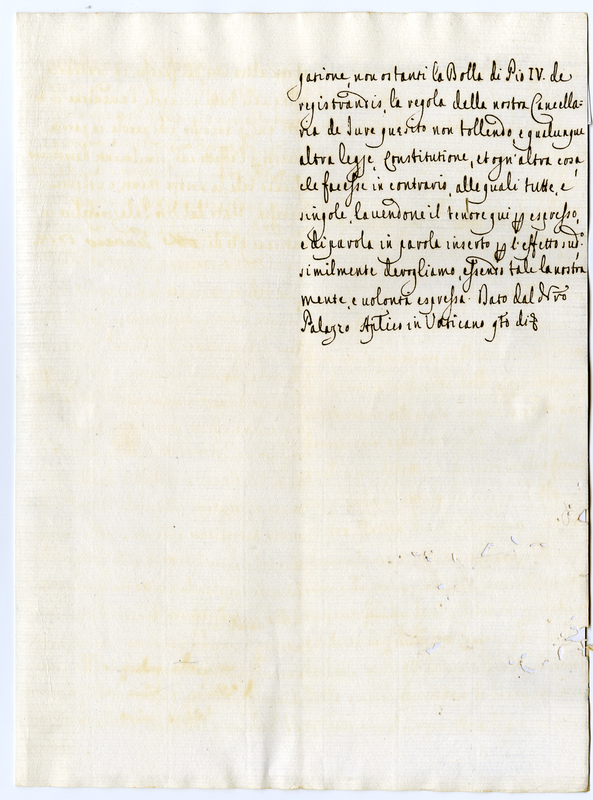 gatione, non ostanti la Bolla di Pio IV. de
registrandis, la regola della nostra Cancella=
ria de Jure quesito non tollendo, e qualunque
altra legge, Constitutione, et ogn'altra cosa
che facesse in contrario, alle quali tutte, e
singole, havendone il tenore qui p espresso,
e di parola in parola inserto p l'effetto sud.o
similmente deroghiamo, essendo tale la nostra
mente, e volontà espressa. Dato dal Nro
Palazzo Aplico in Vaticano qto dì